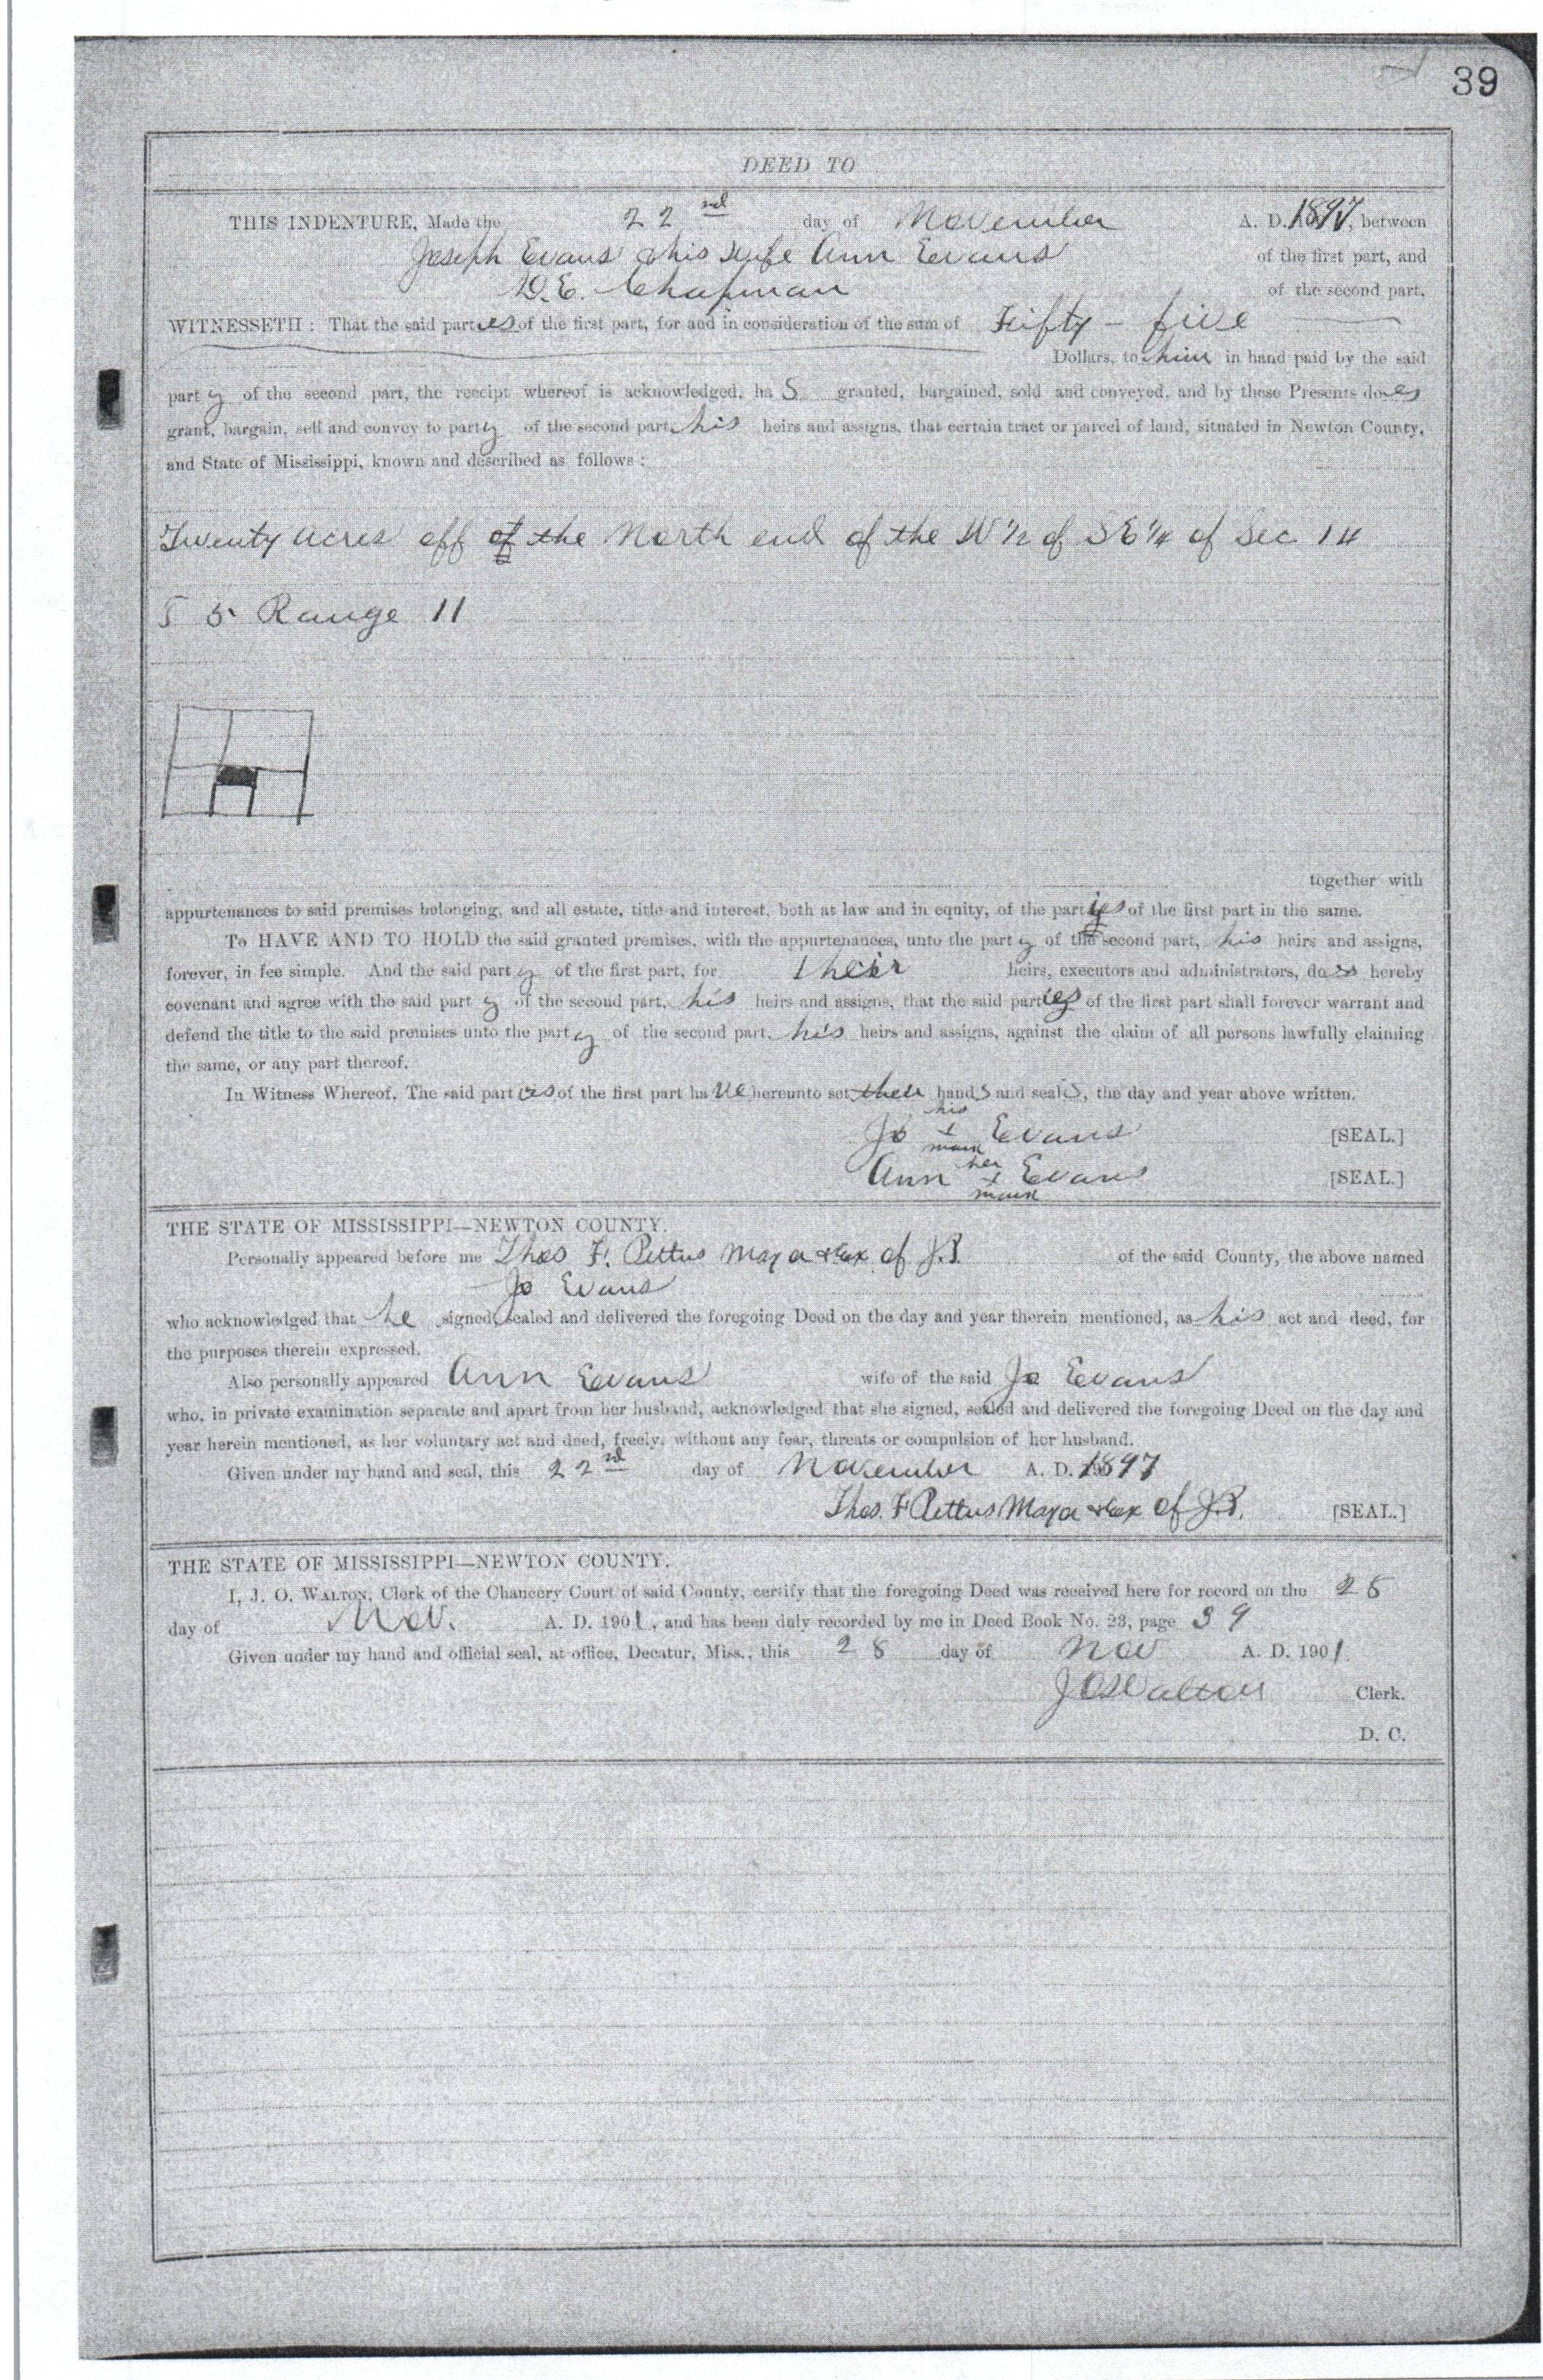 39
DEED TO
THIS INDENTURE, Made the 22nd day of November A. D. 1897, between
Joseph Evans & his wife Ann Evans of the first part, and
D. E. Chapman of the second part,
WITNESSETH: That the said parties of the first part, for and in consideration of the sum of Fifty - five
Dollars, to him in hand paid by the said
party of the second part, the receipt whereof is acknowledged, has granted, bargained, sold and conveyed, and by these Presents does
grant, bargain, sell and convey to party of the second part, his heirs and assigns, that certain tract or parcel of land, situated in Newton County,
and State of Mississippi, known and described as follows:
Twenty acres off of the North end of the W 1/2 of SE 1/4 of Sec 14
T 5 Range 11
together with
appurtenances to said premises belonging, and all estate, title and interest, both at law and in equity, of the parties of the first part in the same.
To HAVE AND TO HOLD the said granted premises, with the appurtenances, unto the party of the second part, his heirs and assigns,
forever, in fee simple. And the said party of the first part, for their heirs, executors and administrators, does hereby
covenant and agree with the said party of the second part, his heirs and assigns, that the said parties of the first part shall forever warrant and
defend the title to the said premises unto the party of the second part, his heirs and assigns, against the claim of all persons lawfully claiming
the same, or any part thereof.
In Witness Whereof, The said parties of the first part have hereunto set their hands and seals, the day and year above written.
his
Jo x Evans [SEAL.]
mark
her
Ann x Evans [SEAL.]
mark
THE STATE OF MISSISSIPPI—NEWTON COUNTY.
Personally appeared before me Thos F. Pettus Mayor & Ex of J.P. of the said County, the above named
Jo Evans
who acknowledged that he signed, sealed and delivered the foregoing Deed on the day and year therein mentioned, as his act and deed, for
the purposes therein expressed.
Also personally appeared Ann Evans wife of the said Jo Evans
who, in private examination separate and apart from her husband, acknowledged that she signed, sealed and delivered the foregoing Deed on the day and
year herein mentioned, as her voluntary act and deed, freely, without any fear, threats or compulsion of her husband.
Given under my hand and seal, this 22nd day of November A. D. 1897
Thos. F Pettus Mayor & Ex of J.P. [SEAL.]
THE STATE OF MISSISSIPPI—NEWTON COUNTY.
I, J. O. WALTON, Clerk of the Chancery Court of said County, certify that the foregoing Deed was received here for record on the
day of Nov. A. D. 1901, and has been duly recorded by me in Deed Book No. 23, page 39
Given under my hand and official seal, at office, Decatur, Miss., this 28 day of Nov A. D. 1901
J O Walton Clerk.
D. C.